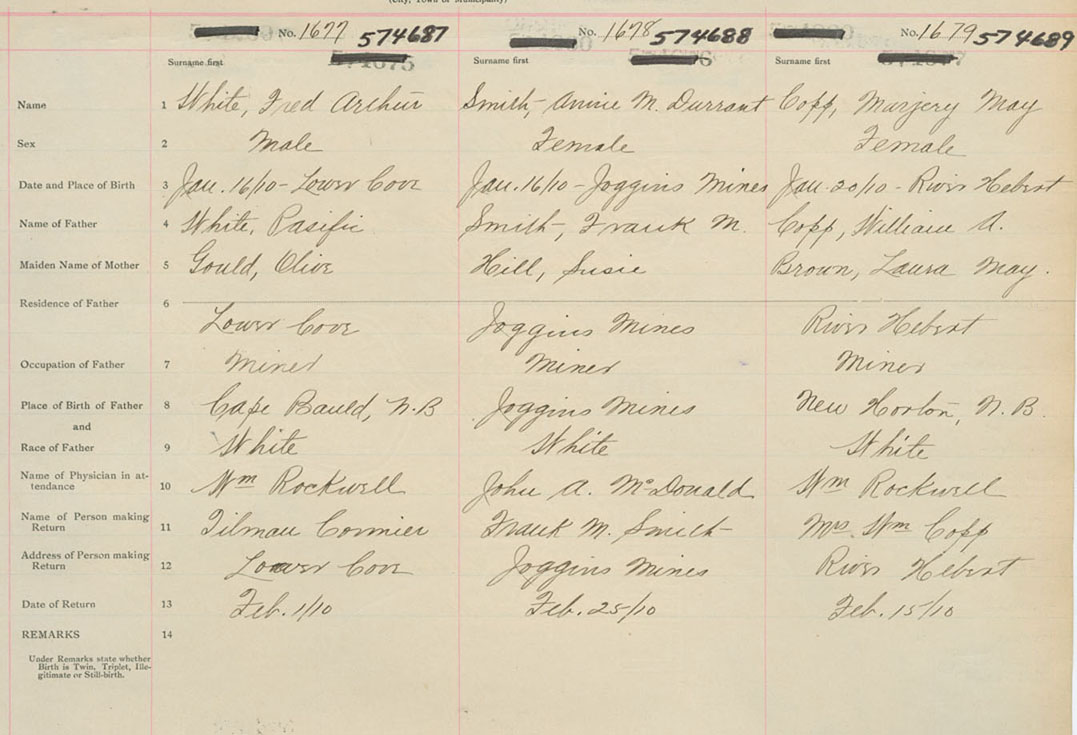 (City, Town or Municipality)
No. 1677 574687 No. 1678 574688 No. 1679 574689
Surname first Surname first Surname first
Name 1 White, Fred Arthur Smith, Annie M. Durrant Copp, Marjery May
Sex 2 Male Female Female
Date and Place of Birth 3 Jan. 16/10 - Lower Cove Jan. 16/10 - Joggins Mines Jan. 20/10 - River Hebert
Name of Father 4 White, Pasific Smith, Frank M. Copp, William A.
Maiden Name of Mother 5 Gould, Olive Hill, Susie Brown, Laura May.
Residence of Father 6
Lower Cove Joggins Mines River Hebert
Occupation of Father 7 Miner Miner Miner
Place of Birth of Father 8 Cape Bauld, N.B Joggins Mines New Horton, N.B.
and
Race of Father 9 White White White
Name of Physician in at-
tendance 10 Wm Rockwell John A. McDonald Wm Rockwell
Name of Person making
Return 11 Tilman Cormier Frank M. Smith Mrs. Wm Copp
Address of Person making
Return 12 Lower Cove Joggins Mines River Hebert
Date of Return 13 Feb. 1/10 Feb. 25/10 Feb. 15/10
REMARKS 14
Under Remarks state whether
Birth is Twin, Triplet, Ille-
gitimate or Still-birth.